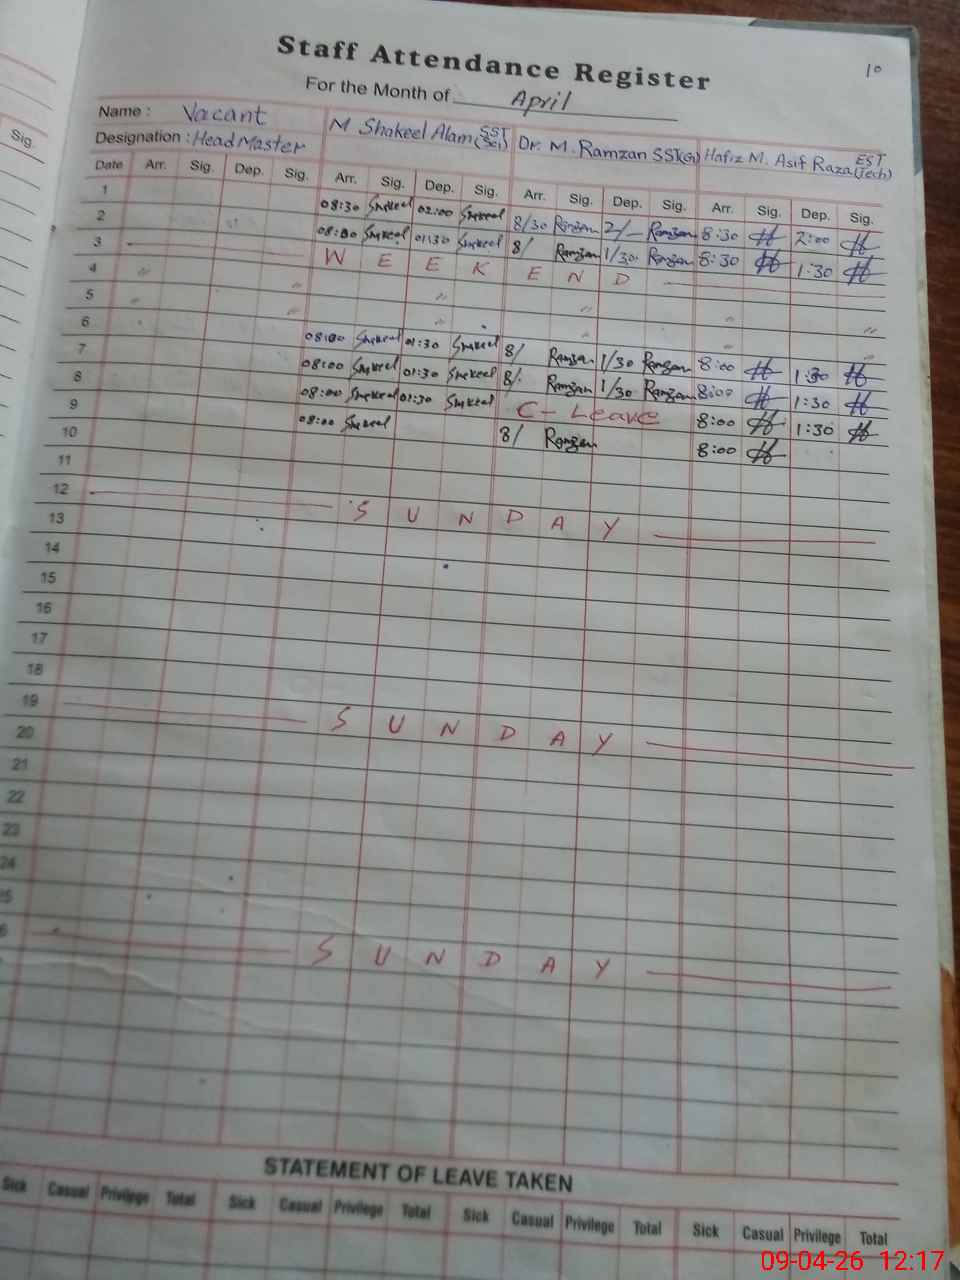 10
Staff Attendance Register
For the Month of April
Name : Vacant M Shakeel Alam SST (Sci) Dr. M. Ramzan SST(G) Hafiz M. Asif Raza EST (Tech)
Designation : Head Master
Date Arr. Sig. Dep. Sig. Arr. Sig. Dep. Sig. Arr. Sig. Dep. Sig. Arr. Sig. Dep. Sig.
1 08:30 Shakeel 02:00 Shakeel 8/30 Ramzan 2/- Ramzan 8:30 2:00
2 08:00 Shakeel 01:30 Shakeel 8/ Ramzan 1/30 Ramzan 8:30 1:30
3 W E E K E N D
4 " " " " "
5 " " " " " "
6 08:00 Shakeel 01:30 Shakeel 8/ Ramzan 1/30 Ramzan 8:00 1:30
7 08:00 Shakeel 01:30 Shakeel 8/. Ramzan 1/30 Ramzan 8:00 1:30
8 08:00 Shakeel 01:30 Shakeel C- Leave 8:00 1:30
9 08:00 Shakeel 8/ Ramzan 8:00
10
11
12 S U N D A Y
13
14
15
16
17
18
19 S U N D A Y
20
21
22
23
24
25
26 S U N D A Y
STATEMENT OF LEAVE TAKEN
Sick Casual Privilege Total Sick Casual Privilege Total Sick Casual Privilege Total Sick Casual Privilege Total
09-04-26 12:17
Sig.